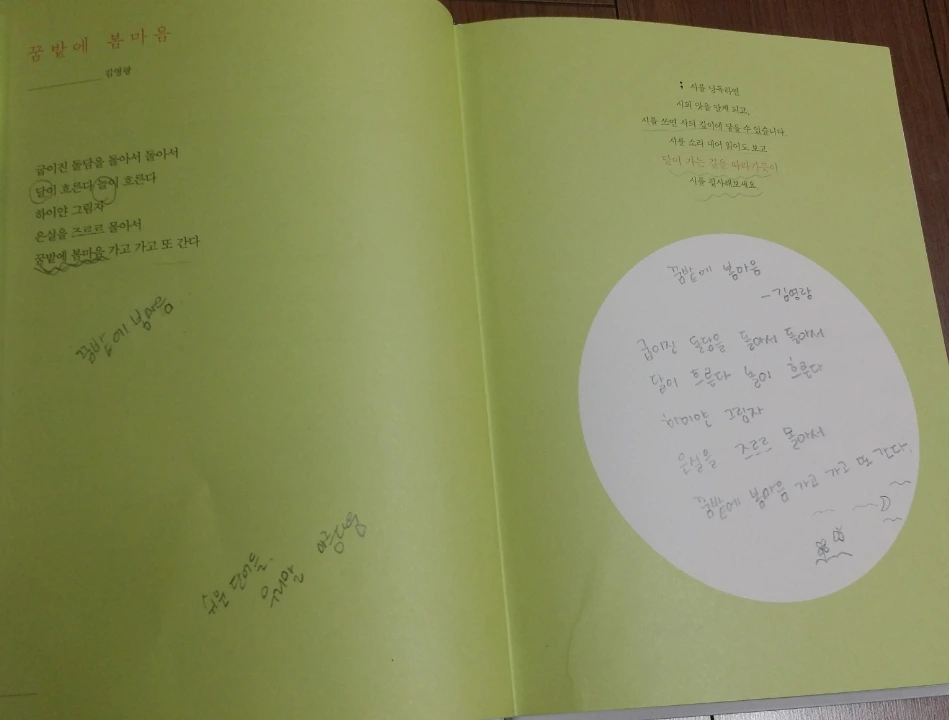 꿈밭에 봄마음
김영랑
굽이진 돌담을 돌아서 돌아서
달이 흐른다 놀이 흐른다
하이얀 그림자
은실을 즈르르 몰아서
꿈밭에 봄마음 가고 가고 또 간다
꿈밭에 봄마음
쉬운 단어들.
우리말 아름다움
시를 낭독하면
시의 맛을 알게 되고,
시를 쓰면 시의 깊이에 닿을 수 있습니다.
시를 소리 내어 읽어도 보고
달이 가는 길을 따라가듯이
시를 필사해보세요.
꿈밭에 봄마음
- 김영랑
굽이진 돌담을 돌아서 돌아서
달이 흐른다 놀이 흐른다
하이얀 그림자
은실을 즈르르 몰아서
꿈밭에 봄마음 가고 가고 또 간다.